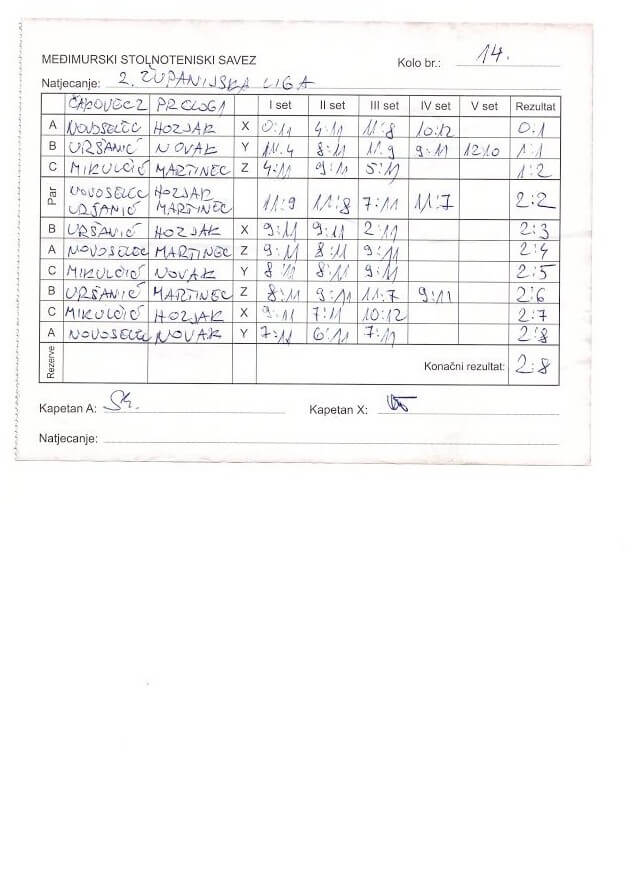 MEĐIMURSKI STOLNOTENISKI SAVEZ Kolo br.: 14.
Natjecanje: 2. ŽUPANIJSKA LIGA
ČAKOVEC 2 PRELOG 1 I set II set III set IV set V set Rezultat
A NOVOSELEC HOZJAK X 0:11 4:11 11:8 10:12 0:1
B URŠANIĆ NOVAK Y 11:4 8:11 11:9 9:11 12:10 1:1
C MIKULČIĆ MARTINEC Z 4:11 9:11 5:11 1:2
Par NOVOSELEC HOZJAK
URŠANIĆ MARTINEC 11:9 11:8 7:11 11:7 2:2
B URŠANIĆ HOZJAK X 9:11 9:11 2:11 2:3
A NOVOSELEC MARTINEC Z 9:11 8:11 9:11 2:4
C MIKULČIĆ NOVAK Y 8:11 8:11 9:11 2:5
B URŠANIĆ MARTINEC Z 8:11 9:11 11:7 9:11 2:6
C MIKULČIĆ HOZJAK X 9:11 7:11 10:12 2:7
A NOVOSELEC NOVAK Y 7:11 6:11 7:11 2:8
Rezerve Konačni rezultat: 2:8
Kapetan A: Kapetan X:
Natjecanje: